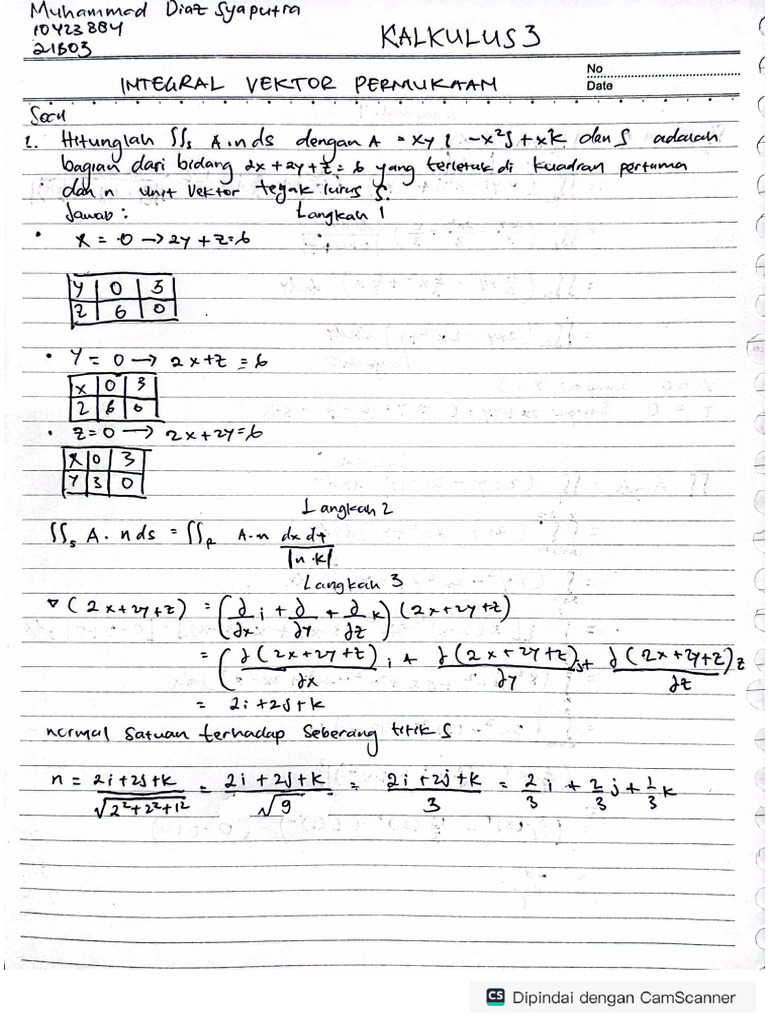 Muhammad Diaz Syaputra
10423884
21B03
KALKULUS 3
No
Date
INTEGRAL VEKTOR PERMUKAAN
Soal
1. Hitunglah ∫∫s A.n ds dengan A = xy i - x²j + xk dan S adalah
bagian dari bidang 2x + 2y + z = 6 yang terletak di kuadran pertama
dan n unit Vektor tegak lurus S.
Jawab : Langkah 1
• x = 0 → 2y + z = 6
y | 0 | 3
z | 6 | 0
• Y = 0 → 2x + z = 6
x | 0 | 3
z | 6 | 0
• z = 0 → 2x + 2y = 6
x | 0 | 3
y | 3 | 0
Langkah 2
∫∫s A . n ds = ∫∫R A.n dx dy / |n.k|
Langkah 3
∇ (2x + 2y + z) = (∂/∂x i + ∂/∂y + ∂/∂z k) (2x + 2y + z)
= (∂(2x + 2y + z)/∂x i + ∂(2x + 2y + z)/∂y j + ∂(2x + 2y + z)/∂z z
= 2i + 2j + k
normal satuan terhadap seberang titik S
n = 2i + 2j + k / √2² + 2² + 1² = 2i + 2j + k / √9 = 2i + 2j + k / 3 = 2/3 i + 2/3 j + 1/3 k
CS Dipindai dengan CamScanner